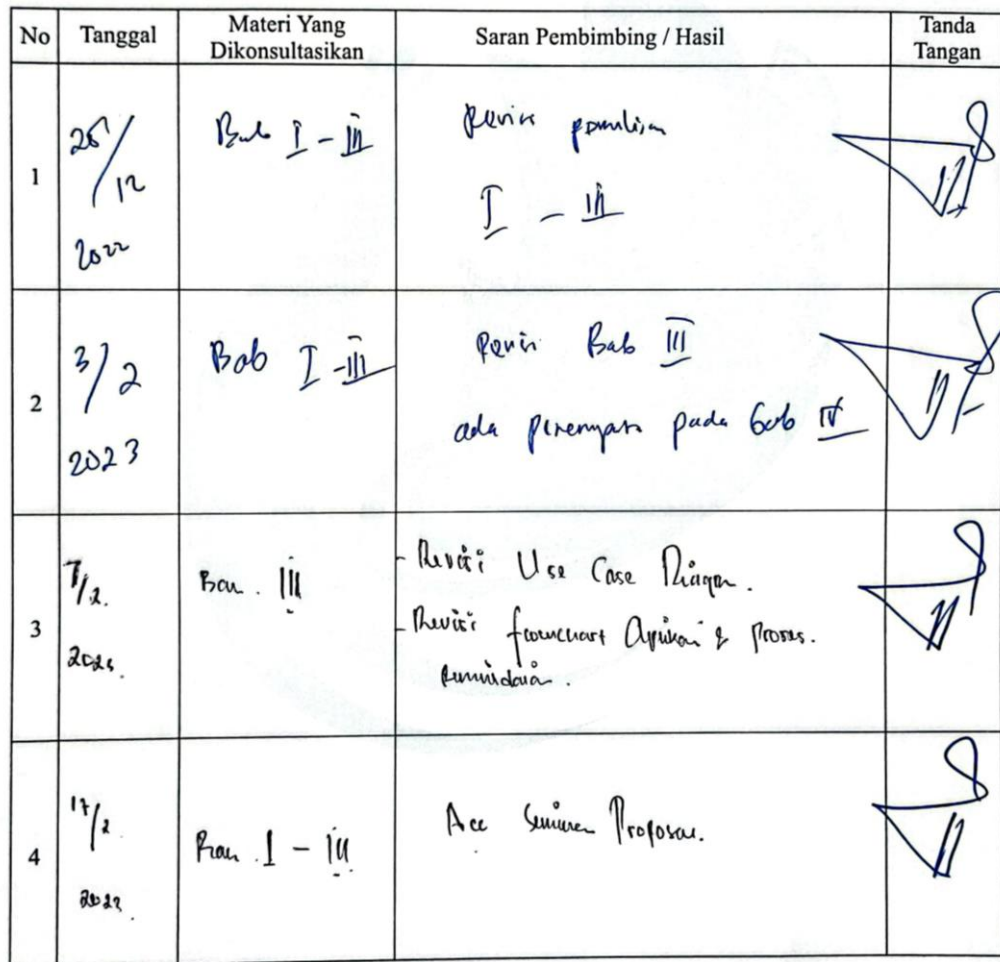 No Tanggal Materi Yang Dikonsultasikan Saran Pembimbing / Hasil Tanda Tangan
1
12
2022
Bab I - III
Revisi penulisan
I - III
2
3/2
2023
Bab I - III
Revisi Bab III
ada pada bab IV
3
7/2.
Bab. III
- Revisi Use Case Diagram.
- Revisi flowchart Aplikasi & Proses.
4
17/2.
Bab. I - III
Acc Seminar Proposal.